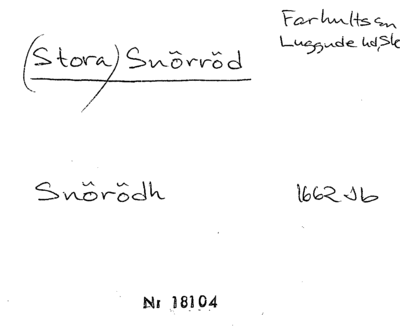 (Stora) Snörröd
Farhults sn
Luggude hd, Sk
Snörödh
1662 Jb
Nr 18104